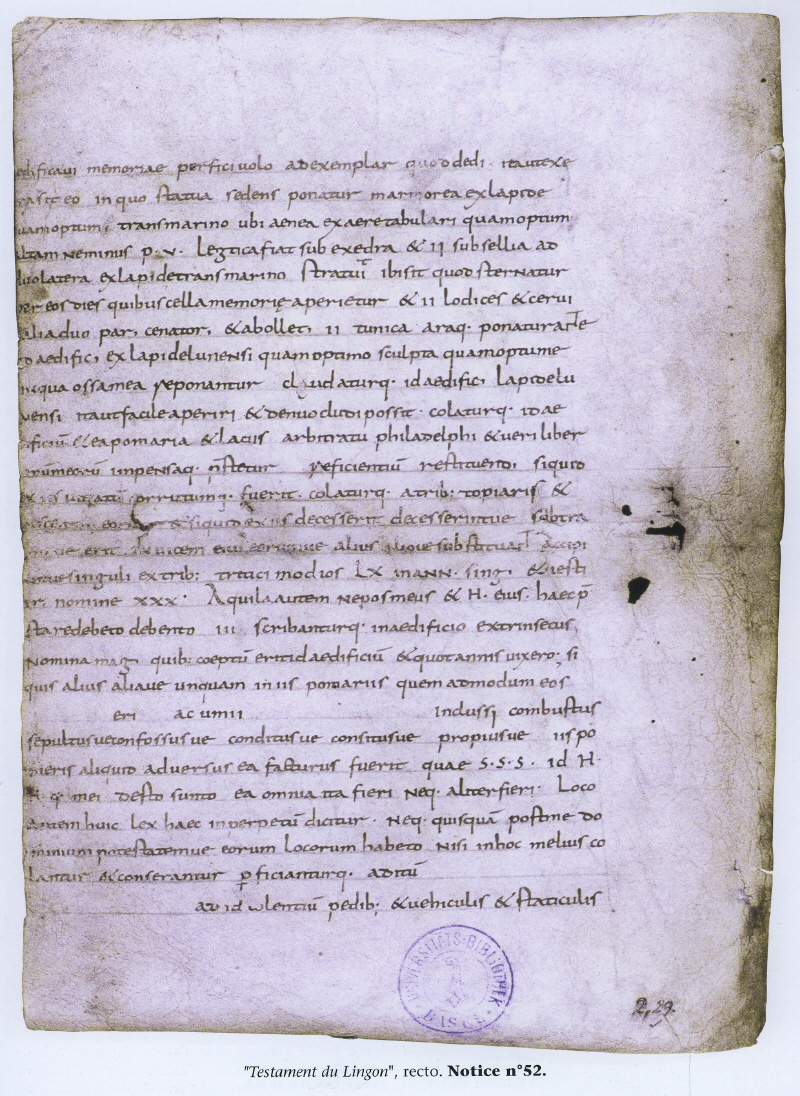 aedificavi memoriae perfici volo ad exemplar quod dedi · ita ut exe
in quo statua sedens ponatur marmorea ex lapide
quam optum; transmarino ubi aenea ex aere tabulari quam optum
altam ne minus p · v · Lectica fiat sub exedra & II subsellia ad
duo latera ex lapide transmarino Stratui ibi sit quod sternatur
per eos dies quibus cella memorię aperietur & II lodices & cervi
alia duo par, cenator, & abollet, II tunica araq · ponatur ante
id aedific, ex lapide lunensi quam optimo sculpta quam optume
in qua ossa mea reponantur cludaturq · id aedific, lapide lu
nensi ita ut facile aperiri & denuo cludi possit · colaturq · id ae
dificiū & ea pomaria & lacus arbitratu philadelphi & veri liber
impensaq · refectiū restituendi siquid
fuerit · colaturq · a trib: topiaris &
& siquid ex iis decesserit decesserintve
alius
singuli ex trib: tritici modios LX in ANN · sing · & vesti
ari nomine XXX · Aquila autem nepos meus & H · eius · haec p̄
stare debeto debento III scribanturq · in aedificio extrinsecus
nomina mag quib: coeptū erit id aedificiū & quot annis vixero; si
quis alius aliave unquam in iis pomariis quemadmodum eos
eri ac umii indussi combustus
sepultusve confossusve conditusve consitusve propiusve iis po
meris aliquid adversus ea facturus fuerit quae S · S · S · id H ·
H · q · mei desto sunto ea omnia ita fieri neq · aliter fieri · Loco
autem huic lex haec in perpetū dicitur · Neq · quisquā post me do
minium potestatemve eorum locorum habeto nisi in hoc melius co
lantur & conserantur p̱ficianturq · aditū
ad id pedib; & vehiculis & staticulis
UNIVERSITÄTS-BIBLIOTHEK BASEL
2,29.
"Testament du Lingon", recto. Notice n°52.